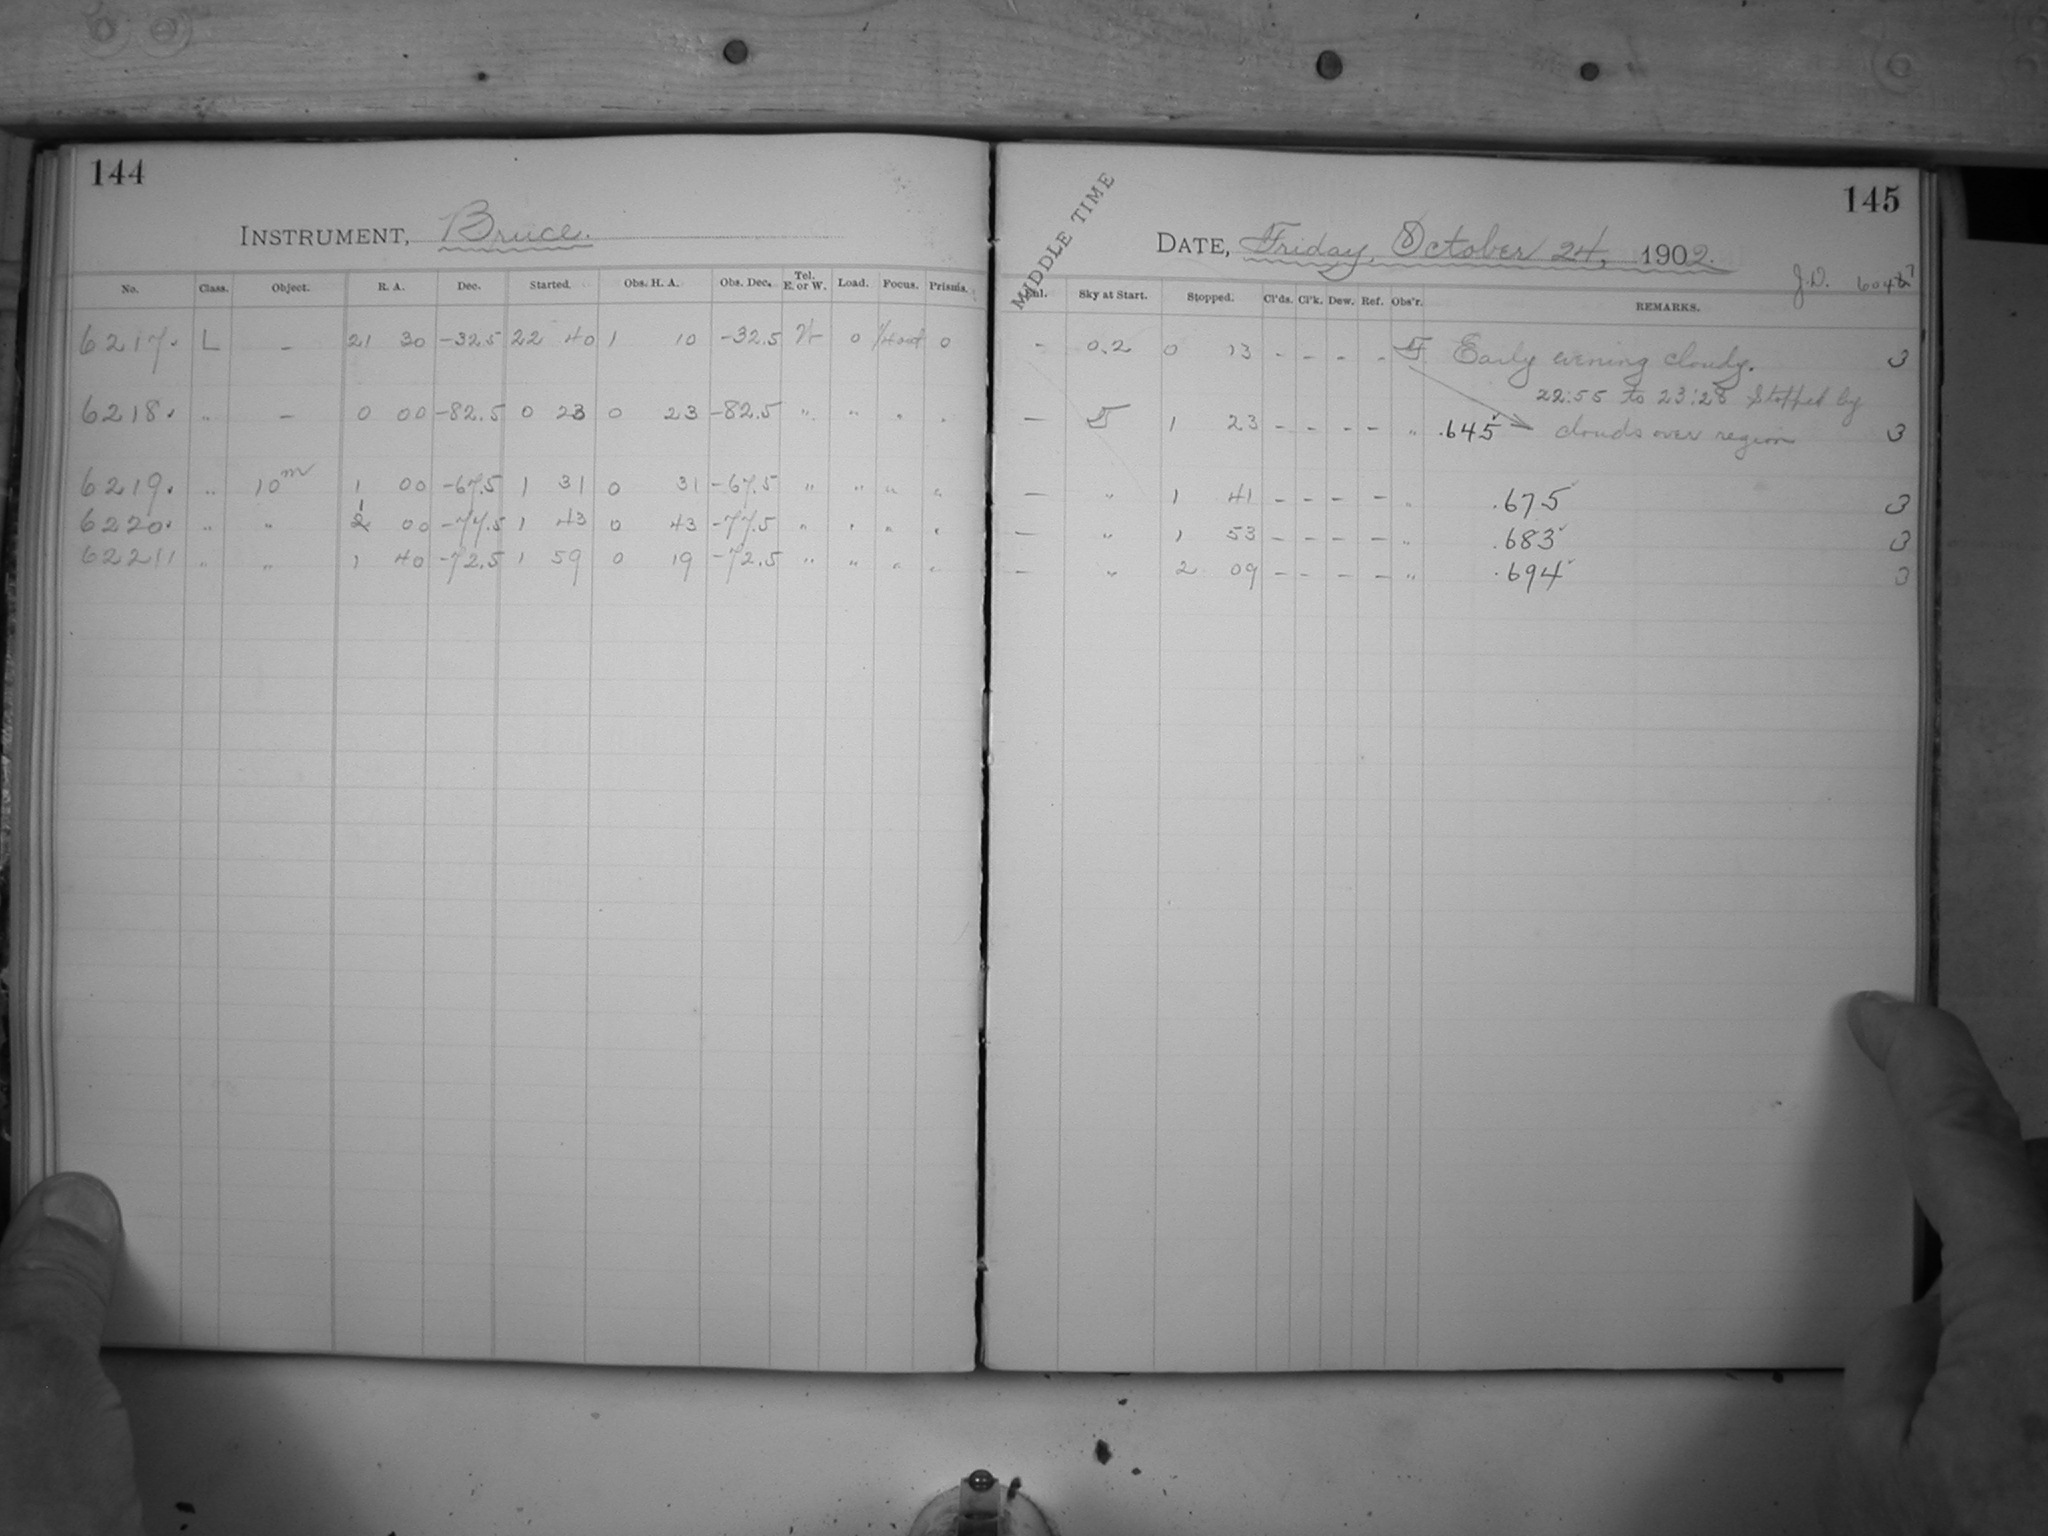 144
INSTRUMENT, Bruce.
No. Class. Object. R. A. Dec. Started. Obs. H. A. Obs. Dec. Tel. E. or W. Load. Focus. Prisms.
6217. L – 21 30 -32.5 22 40 1 10 -32.5 W 0 0
6218. " – 0 00 -82.5 0 23 0 23 -82.5 " " " "
6219. " 10m 1 00 -67.5 1 31 0 31 -67.5 " " " "
6220. " " 1 00 -77.5 1 43 0 43 -77.5 " " " "
6221 " " 1 40 -72.5 1 59 0 19 -72.5 " " " "
145
MIDDLE TIME
DATE, Friday, October 24, 1902.
J.D. 6047
Sky at Start. Stopped. Cl'ds. Cl'k. Dew. Ref. Obs'r. REMARKS.
– 0.2 0 13 – – – – F Early evening cloudy. 3
22:55 to 23:28 Stopped by
— F 1 23 – – – – " .645 clouds over region 3
— " 1 41 – – – – " .675 3
— " 1 53 – – – – " .683 3
— " 2 09 – – – – " .694 3